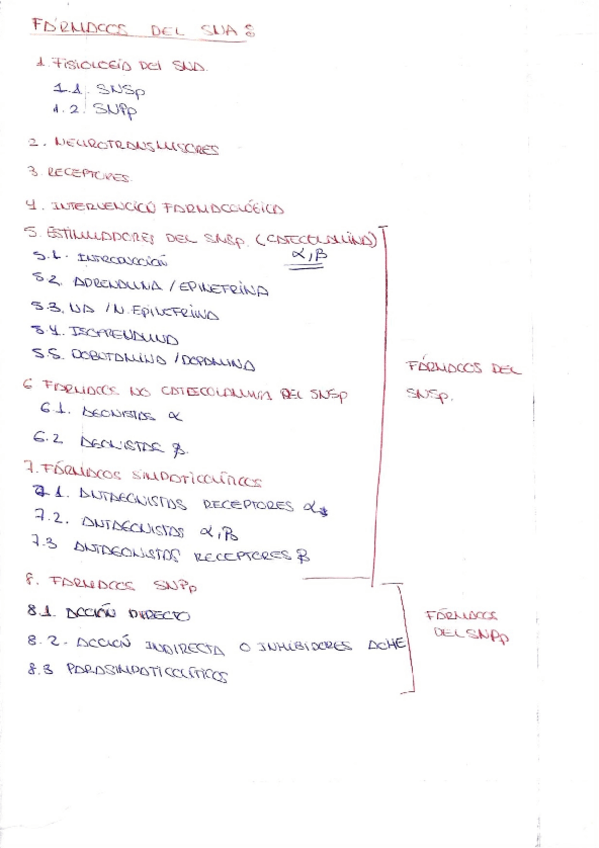 FÁRMACOS DEL SNA:
1. FISIOLOGÍA DEL SNA.
1.1. SNSp
1.2. SNPp
2. NEUROTRANSMISORES
3. RECEPTORES.
4. INTERVENCIÓN FARMACOLÓGICA
5. ESTIMULADORES DEL SNSp. (CATECOLAMINA)
α, β
5.1. INTRODUCCIÓN
5.2. ADRENALINA / EPINEFRINA
5.3. NA / N. EPINEFRINA
5.4. ISOPRENALINA
5.5. DOBUTAMINA / DOPAMINA
6 FÁRMACOS NO CATECOLAMINA DEL SNSp
6.1. AGONISTAS α
6.2 AGONISTAS β.
7. FÁRMACOS SIMPATICOLÍTICOS
7.1. ANTAGONISTAS RECEPTORES α
7.2. ANTAGONISTAS α, β
7.3 ANTAGONISTAS RECEPTORES β
FÁRMACOS DEL
SNSp.
8. FÁRMACOS SNPp
8.1. ACCIÓN DIRECTA
8.2. ACCIÓN INDIRECTA O INHIBIDORES ACHE
8.3 PARASIMPATICOLÍTICOS
FÁRMACOS
DEL SNPp